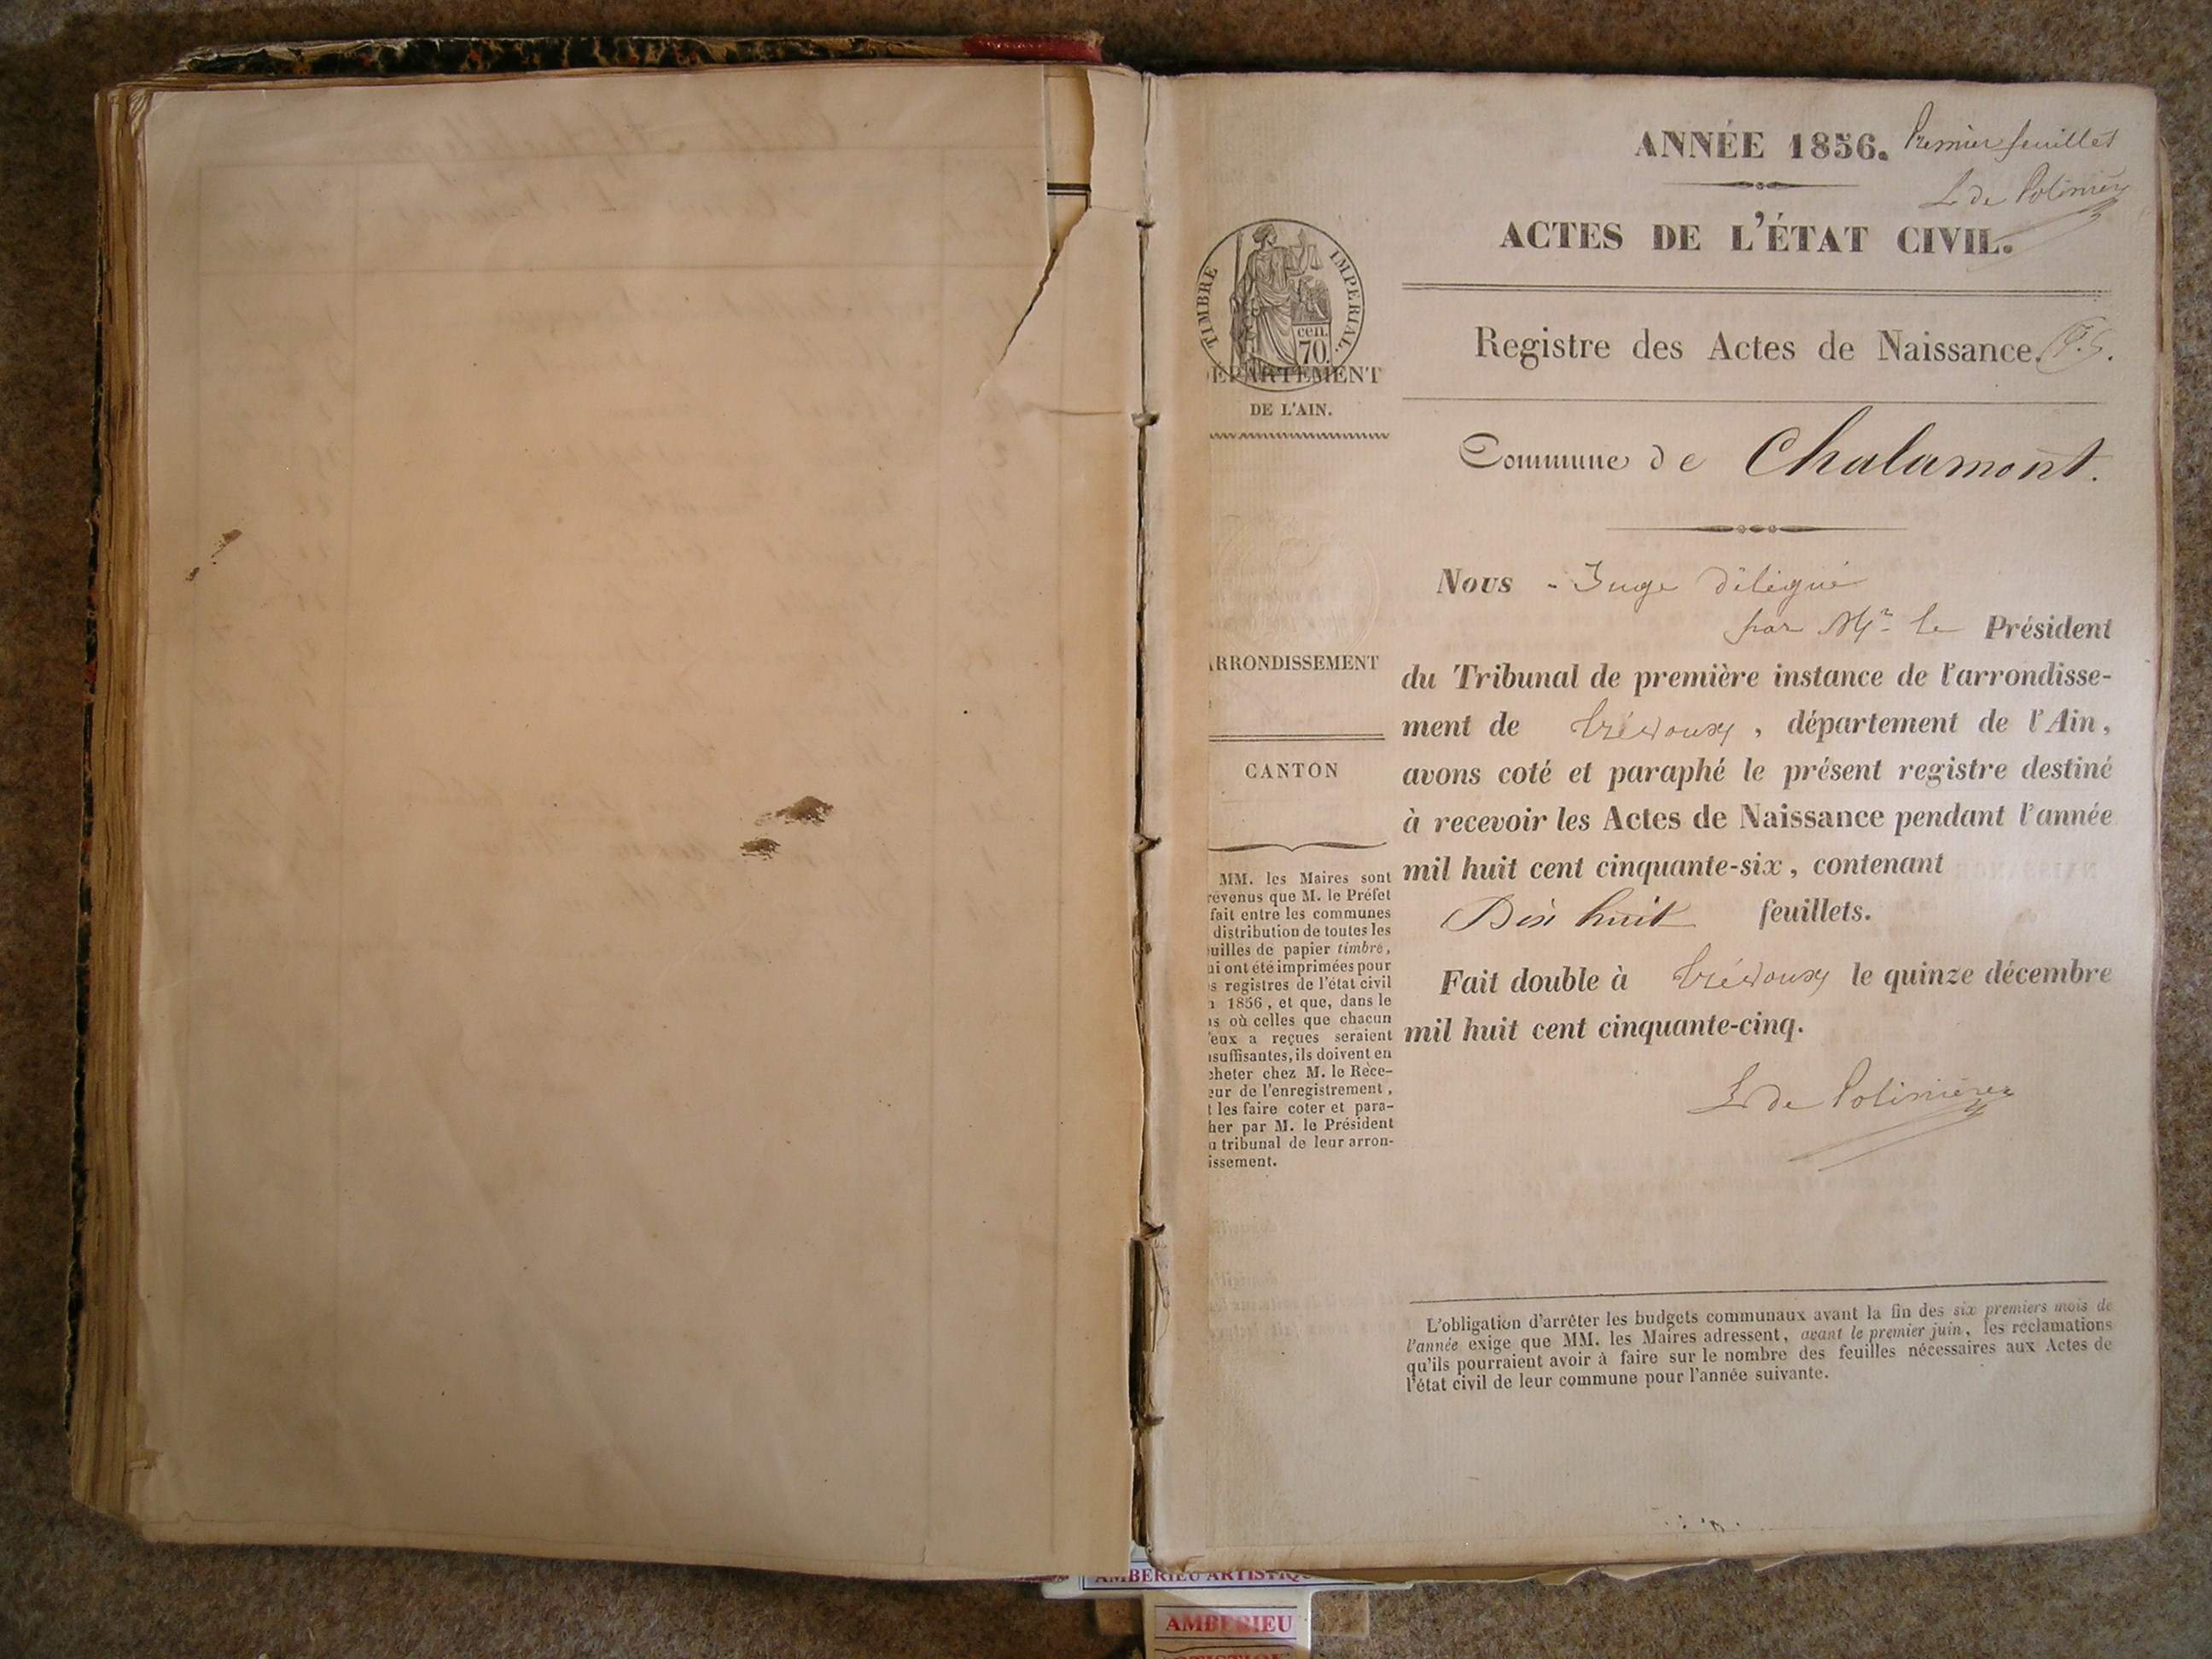 ANNÉE 1856. Premier feuillet
L de Polinière
ACTES DE L'ÉTAT CIVIL.
Registre des Actes de Naissance.
Commune de Chalamont.
Nous - Juge délégué
par Mr le Président
du Tribunal de première instance de l'arrondisse-
ment de Trévoux, département de l'Ain,
avons coté et paraphé le présent registre destiné
à recevoir les Actes de Naissance pendant l'année
mil huit cent cinquante-six, contenant
Dix huit feuillets.
Fait double à Trévoux le quinze décembre
mil huit cent cinquante-cinq.
L de Polinière
L'obligation d'arrêter les budgets communaux avant la fin des six premiers mois de
l'année exige que MM. les Maires adressent, avant le premier juin, les réclamations
qu'ils pourraient avoir à faire sur le nombre des feuilles nécessaires aux Actes de
l'état civil de leur commune pour l'année suivante.
TIMBRE IMPERIAL.
cen.
70.
EPARTEMENT
DE L'AIN.
RRONDISSEMENT
CANTON
MM. les Maires sont
révenus que M. le Préfet
fait entre les communes
distribution de toutes les
uilles de papier timbré,
ui ont été imprimées pour
s registres de l'état civil
1856, et que, dans le
s où celles que chacun
'eux a reçues seraient
suffisantes, ils doivent en
cheter chez M. le Rece-
eur de l'enregistrement,
t les faire coter et para-
her par M. le Président
u tribunal de leur arron-
issement.
AMBERIEU ARTISTIQU
AMBERIEU
ARTISTIQU